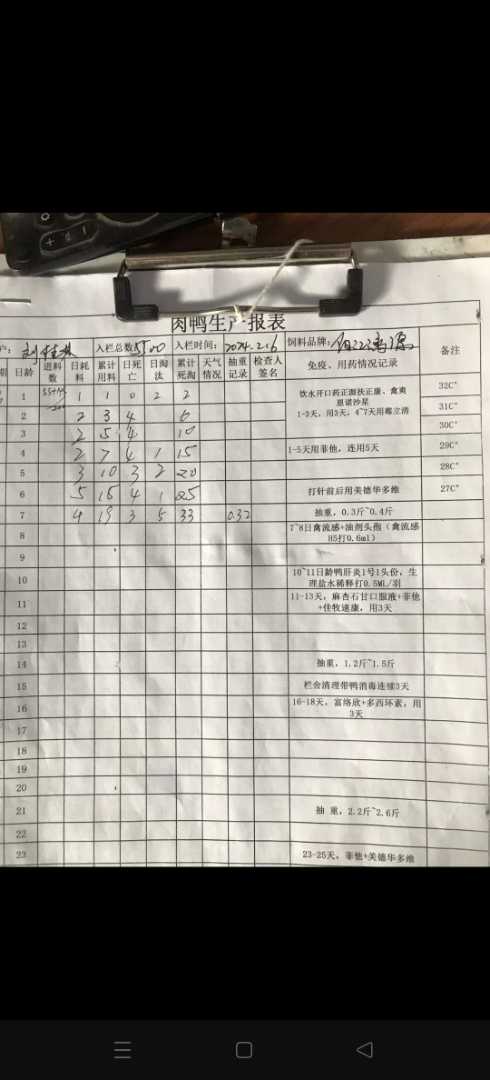 肉鸭生产报表
入栏总数:5500 入栏时间:2024.2.6 饲料品牌: 备注
日龄 进料数 日耗料 累计用料 日死亡 日淘汰 累计死淘 天气情况 抽重记录 检查人签名 免疫、用药情况记录
1 1 1 0 2 2 饮水开口药正面扶正康、禽爽 恩诺沙星 32C°
2 2 3 4 6 1-3天,用3天,4~7天用霉立清 31C°
3 2 5 4 10 30C°
4 2 7 4 1 15 1-5天用菲他,连用5天 29C°
5 3 10 3 2 20 28C°
6 5 15 4 1 25 打针前后用美德华多维 27C°
7 4 19 3 5 33 0.32 抽重,0.3斤~0.4斤
8 7~8日禽流感+油剂头孢(禽流感H5打0.6ml)
9
10 10~11日龄鸭肝炎1号1头份,生理盐水稀释打0.5ML/羽
11 11-13天,麻杏石甘口服液+菲他+佳牧速康,用3天
12
13
14 抽重,1.2斤~1.5斤
15 栏舍清理带鸭消毒连续3天
16 16-18天,富络欣+多西环素,用3天
17
18
19
20
21 抽 重,2.2斤~2.6斤
22
23 23-25天,菲他+美德华多维